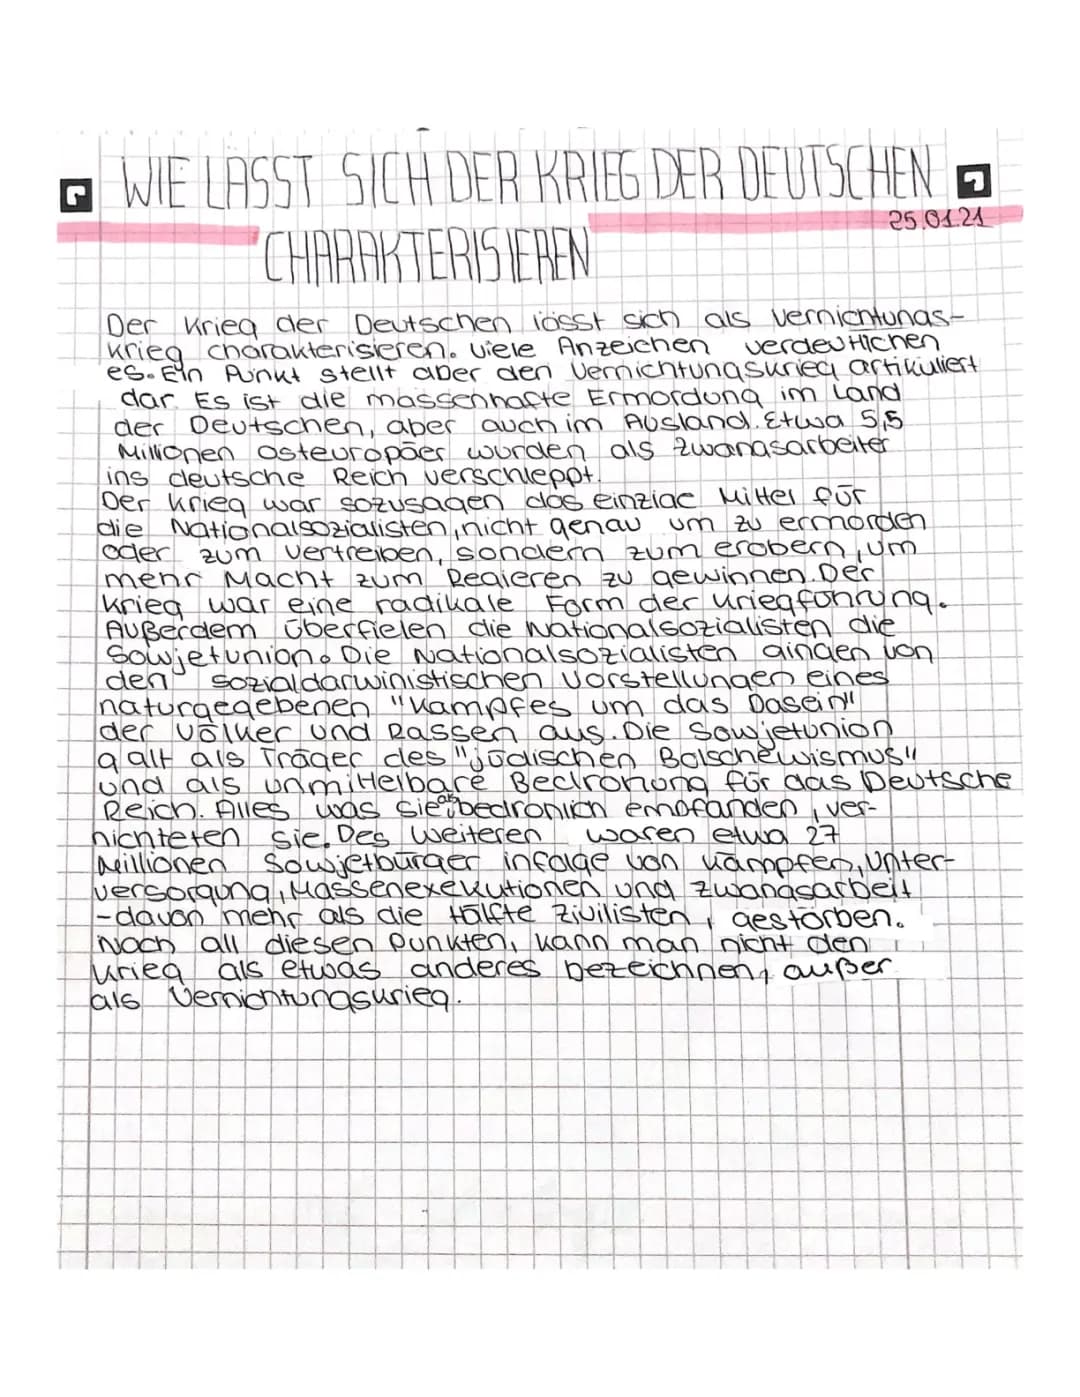 WIE LÄSST SICH DER KRIEG DER DEUTSCHEN
25.01.21
CHARAKTERISIEREN
Der Krieg der Deutschen lässt sich als Vernichtungs-
krieg charakterisieren. Viele Anzeichen verdeutlichen
es. Ein Punkt stellt aber den Vernichtungskrieg artikuliert
dar. Es ist die massenhafte Ermordung im Land
der Deutschen, aber auch im Ausland. Etwa 5,5
Millionen Osteuropäer wurden als Zwangsarbeiter
ins deutsche Reich verschleppt.
Der Krieg war sozusagen das einzige Mittel für
die Nationalsozialisten, nicht genau um zu ermorden
oder zum vertreiben, sondern zum erobern, um
mehr Macht zum Regieren zu gewinnen. Der
Krieg war eine radikale Form der Kriegführung.
Außerdem überfielen die Nationalsozialisten die
Sowjetunion. Die Nationalsozialisten gingen von
den sozialdarwinistischen Vorstellungen eines
naturgegebenen "Kampfes um das Dasein"
der Völker und Rassen aus. Die Sowjetunion
galt als Träger des "jüdischen Bolschewismus"
und als unmittelbare Bedrohung für das Deutsche
Reich. Alles was sie als bedrohlich empfanden, ver-
nichteten sie. Des Weiteren waren etwa 27
Millionen Sowjetbürger infolge von Kämpfen, Unter-
versorgung, Massenexekutionen und Zwangsarbeit
- davon mehr als die Hälfte Zivilisten, gestorben.
Nach all diesen Punkten, kann man nicht den
Krieg als etwas anderes bezeichnen, außer
als Vernichtungskrieg.